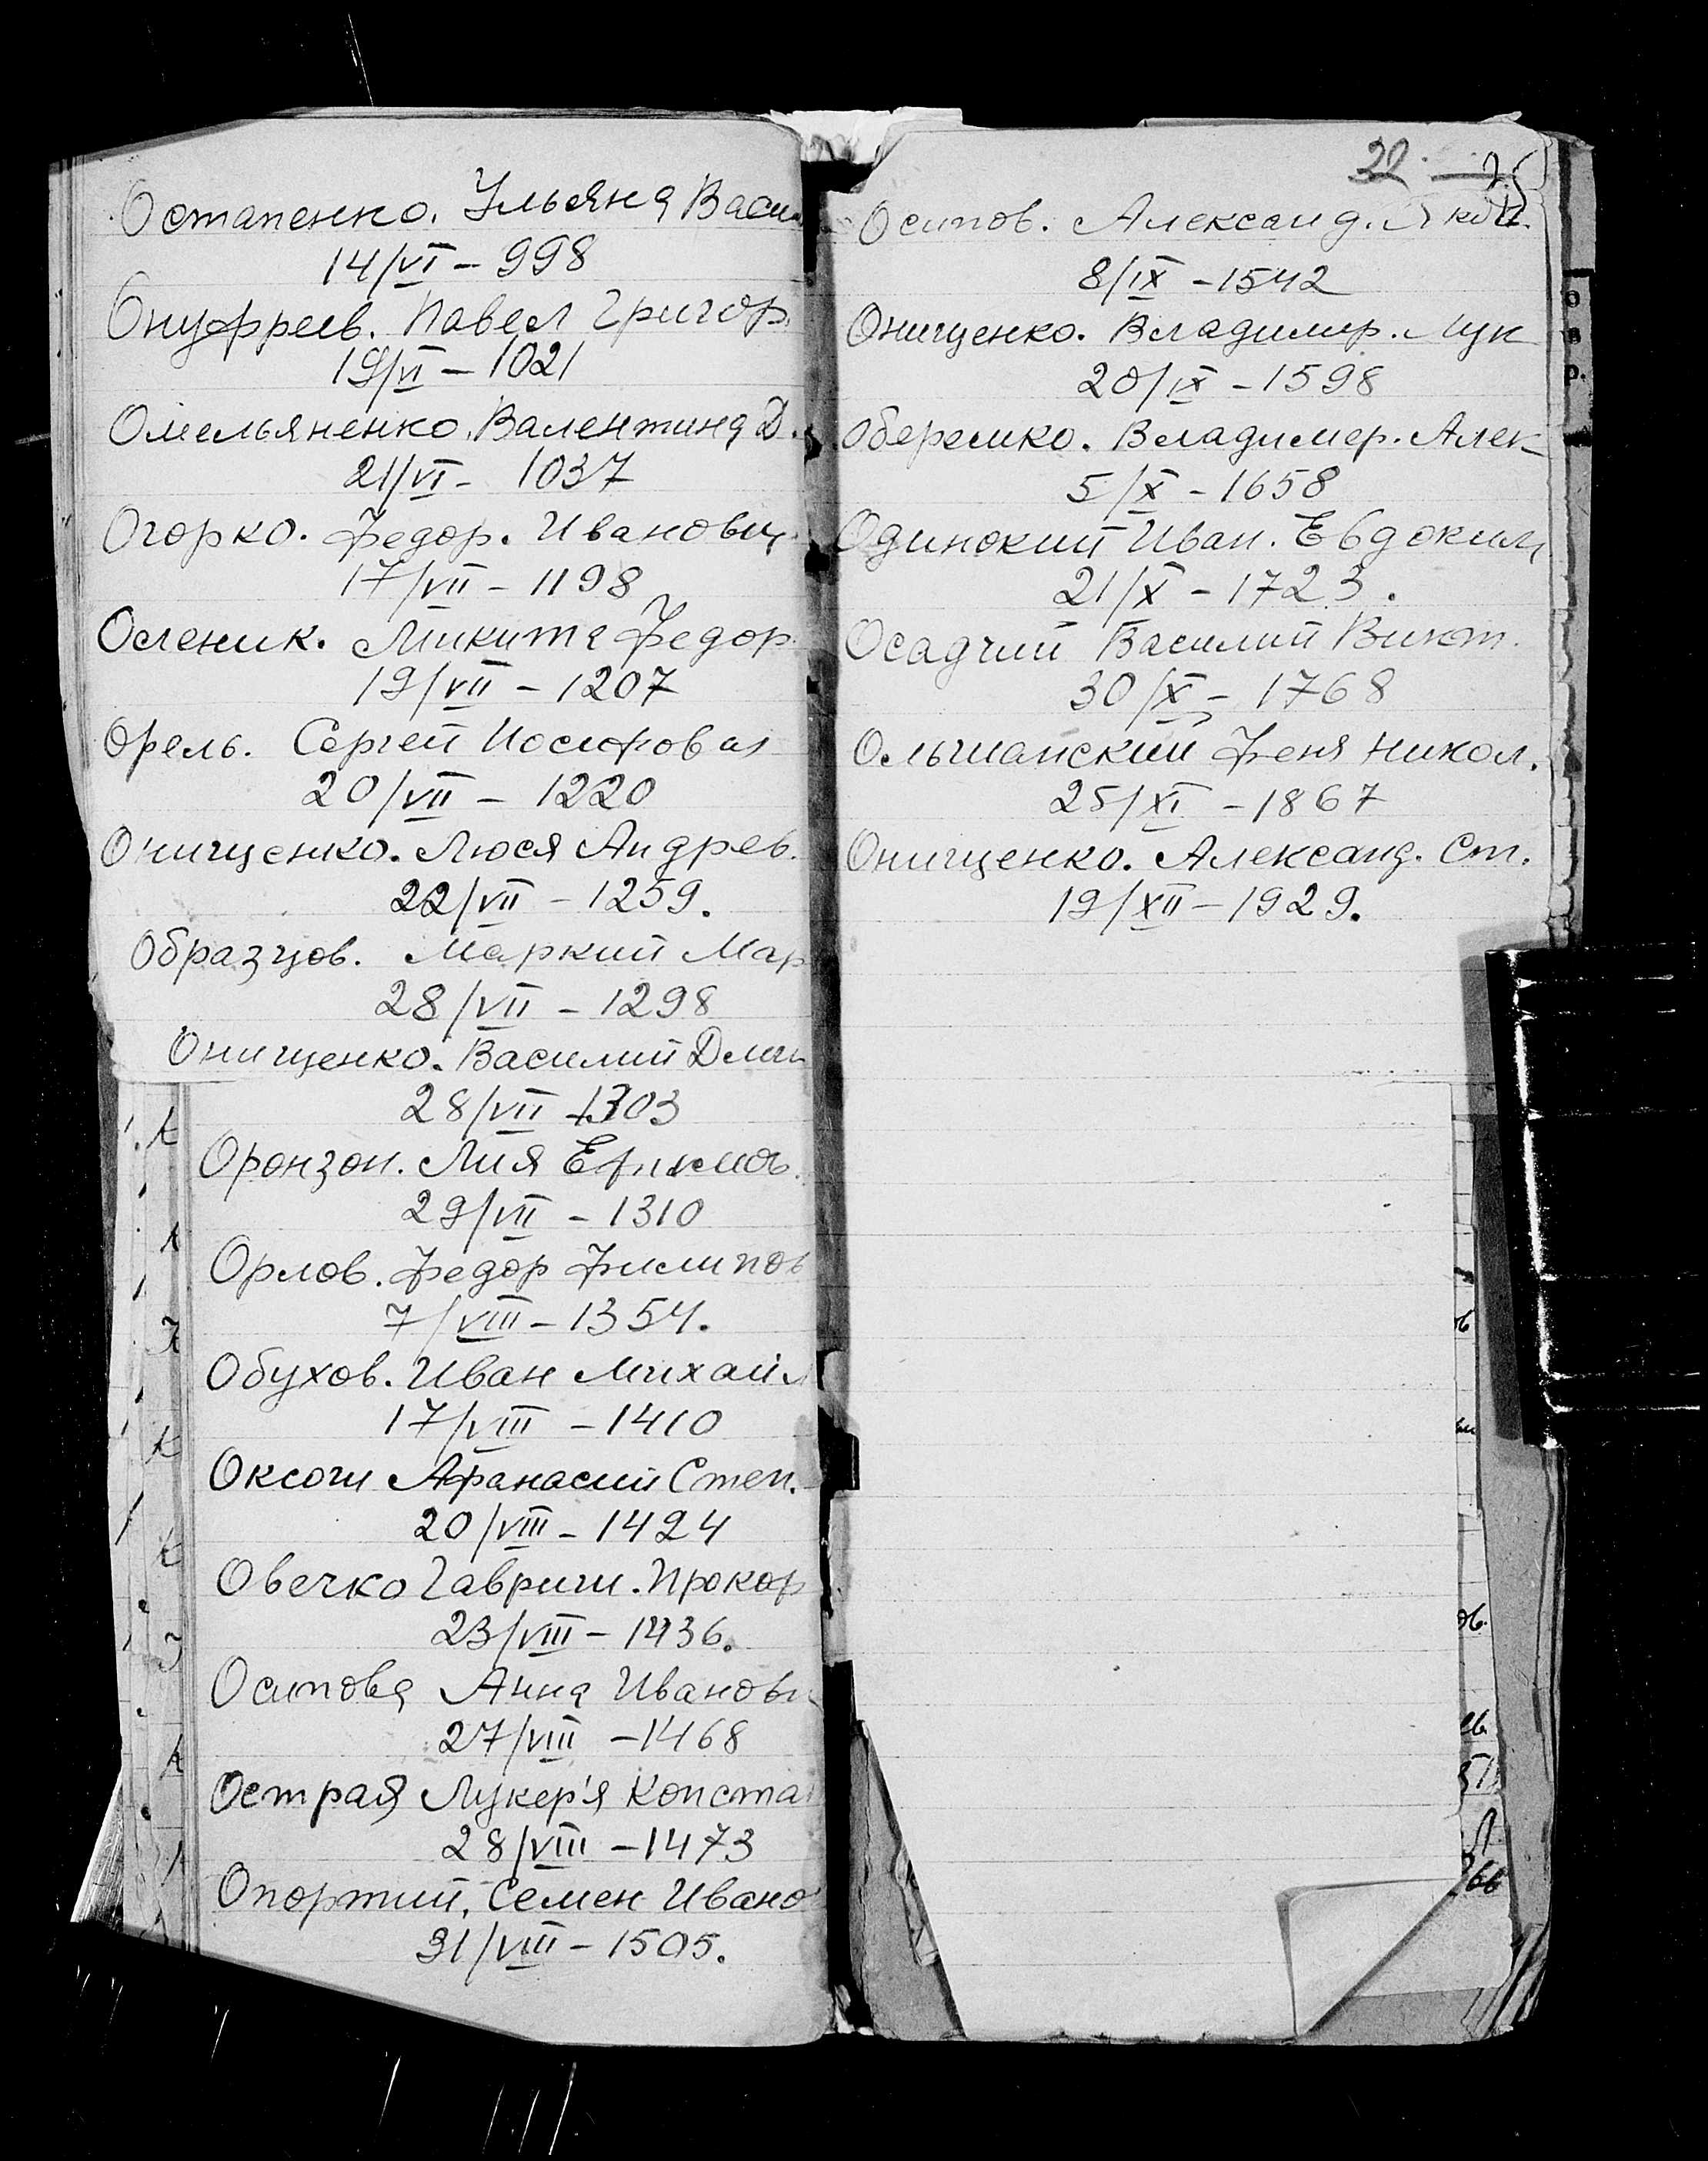 Остапенко. Ульяна Васи
14/VI – 998
Онуфреев. Павел Григор.
19/VI – 1021
Омельяненко. Валентина Д.
21/VI – 1037
Огорко. Федор. Иванович
17/VII – 1198
Осленик. Микита Федор.
19/VII – 1207
Орель. Сергей Иосифов
20/VII – 1220
Онищенко. Люся Андрев.
22/VII – 1259.
Образцов. Маркий Мар
28/VII – 1298
Онищенко. Василий Дми
28/VII – 1303
Оронзон. Лия Ефимов.
29/VII – 1310
Орлов. Федор Филипов
7/VIII – 1354.
Обухов. Иван Михайл
17/VIII – 1410
Афанасий Степ.
20/VIII – 1424
Овечко Гаврил. Прокоф
23/VIII – 1436.
Осипова Анна Иванов
27/VIII – 1468
Острая Лукер'я Конста
28/VIII – 1473
Опортий. Семен Ивано
31/VIII – 1505.
32
Осипов. Александ. Яков.
8/IX – 1542
Онищенко. Владимир. Лук
20/IX – 1598
Оберемко. Владимер. Алек
5/X – 1658
Одинокий Иван. Евдоким
21/X – 1723.
Осадчий Василий Викт.
30/X – 1768
Ольшанский Феня Никол.
25/XI – 1867
Онищенко. Александ. Ст.
19/XII – 1929.